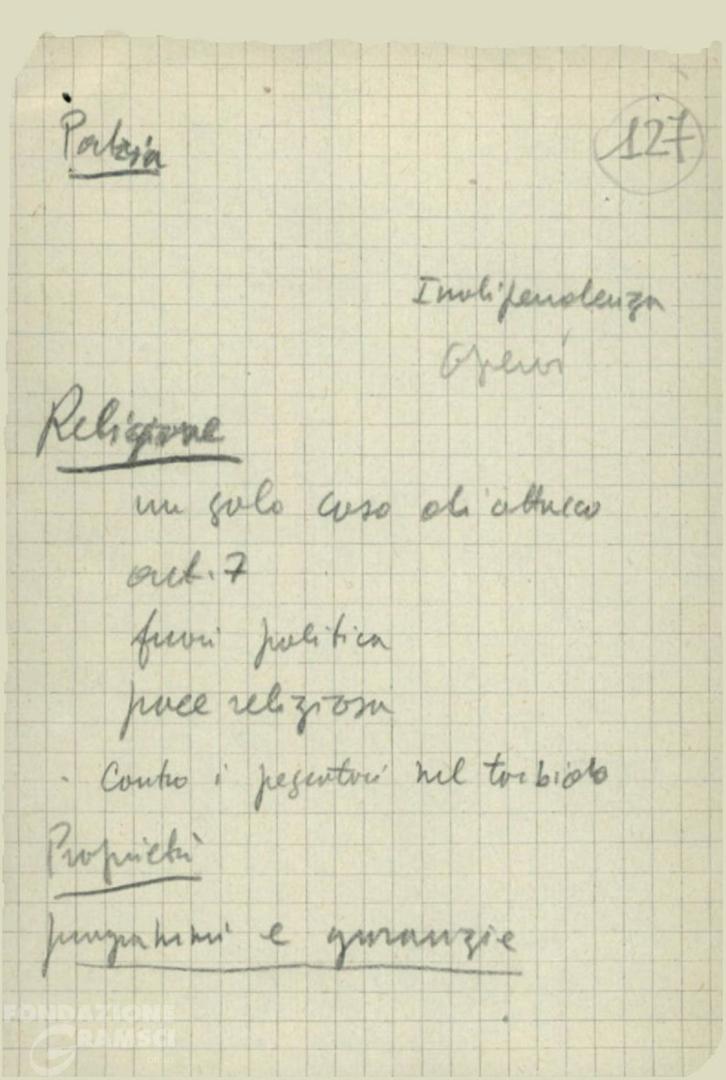 127
Patria
Indipendenza
Operai
Religione
un solo caso di attacco
art. 7
fuori politica
pace religiosa
- Contro i pescatori nel torbido
Proprietà
programmi e garanzie
FONDAZIONE
GRAMSCI